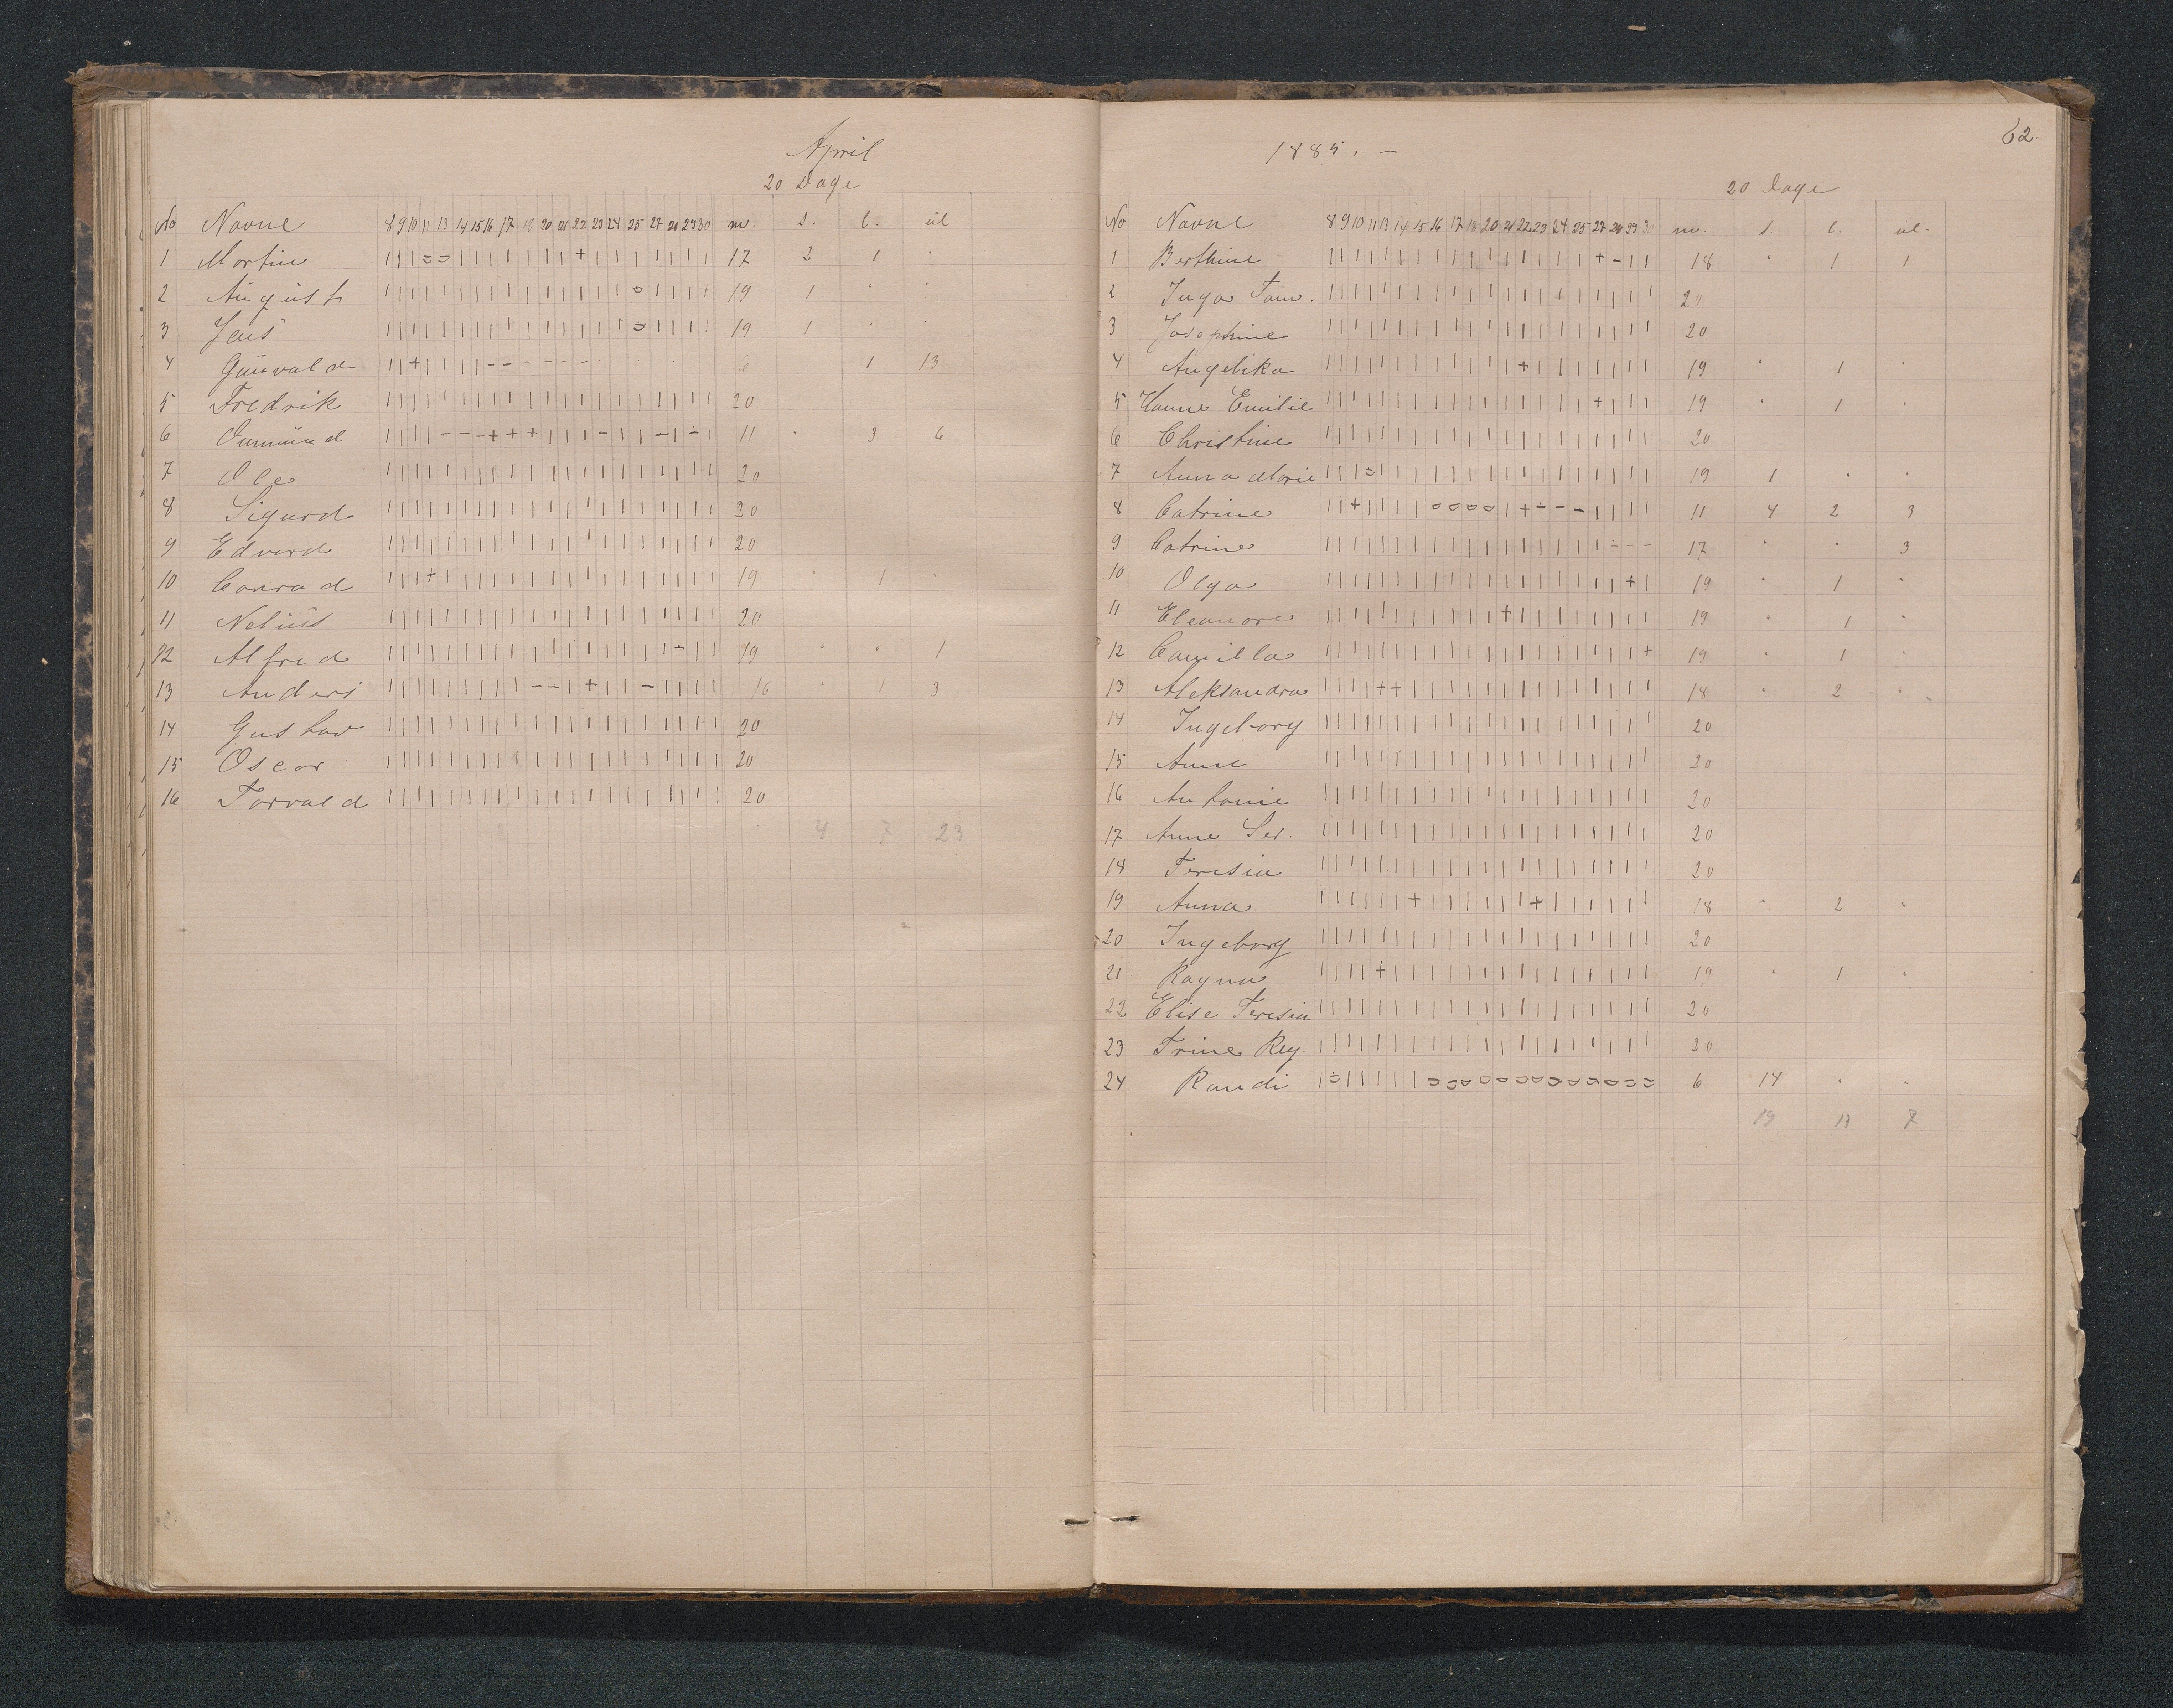 April
20 Dage
No Navne 8 9 10 11 13 14 15 16 17 18 20 21 22 23 24 25 27 28 29 30 m. s. l. ul
1 Martin | | | = = | | | | | | | + | | | | | | | 17 2 1 "
2 August | | | | | | | | | | | | | | | = | | | | 19 1 " "
3 Jens | | | | | | | | | | | | | | | = | | | | 19 1 " "
4 Gunvald | | + | | | | - - - - - - 6 1 13
5 Fredrik | | | | | | | | | | | | | | | | | | | | 20
6 Gunmund | | | | - - - + + + | | | - | | - | - | 11 " 3 6
7 Ole | | | | | | | | | | | | | | | | | | | | 20
8 Sigurd | | | | | | | | | | | | | | | | | | | | 20
9 Edvard | | | | | | | | | | | | | | | | | | | | 20
10 Conrad | | | + | | | | | | | | | | | | | | | | 19 " 1 "
11 Nelius | | | | | | | | | | | | | | | | | | | | 20
12 Alfred | | | | | | | | | | | | | | | | | - | | 19 " " 1
13 Anders | | | | | | | | | - - | + | | - | | | | 16 " 1 3
14 Gustav | | | | | | | | | | | | | | | | | | | | 20
15 Oscar | | | | | | | | | | | | | | | | | | | | 20
16 Torvald | | | | | | | | | | | | | | | | | | | | 20
4 7 23
62.
1885. —
20 Dage
No Navne 8 9 10 11 13 14 15 16 17 18 20 21 22 23 24 25 27 28 29 30 m. s. l. ul.
1 Berthine | | | | | | | | | | | | | | | | + - | | 18 " 1 1
2 Inga Tom. | | | | | | | | | | | | | | | | | | | | 20
3 Josephine | | | | | | | | | | | | | | | | | | | | 20
4 Angelika | | | | | | | | | | | | + | | | | | | | 19 " 1 "
5 Hanne Emilie | | | | | | | | | | | | | | | | + | | | 19 " 1 "
6 Christine | | | | | | | | | | | | | | | | | | | | 20
7 Anna Marie | | | = | | | | | | | | | | | | | | | | 19 1 " "
8 Catrine | | + | | | | = = = = | + - - - | | | | 11 4 2 3
9 Catrine | | | | | | | | | | | | | | | | | - - - 17 " " 3
10 Olga | | | | | | | | | | | | | | | | | | + | 19 " 1 "
11 Eleanore | | | | | | | | | | | + | | | | | | | | 19 " 1 "
12 Camilla | | | | | | | | | | | | | | | | | | | + 19 " 1 "
13 Aleksandra | | | | + + | | | | | | | | | | | | | | 18 " 2 "
14 Ingeborg | | | | | | | | | | | | | | | | | | | | 20
15 Anne | | | | | | | | | | | | | | | | | | | | 20
16 Antonie | | | | | | | | | | | | | | | | | | | | 20
17 Anne Ser. | | | | | | | | | | | | | | | | | | | | 20
18 Teresia | | | | | | | | | | | | | | | | | | | | 20
19 Anna | | | | | | + | | | | | | + | | | | | | 18 " 2 "
20 Ingeborg | | | | | | | | | | | | | | | | | | | | 20
21 Ragna | | | | + | | | | | | | | | | | | | | | 19 " 1 "
22 Elise Teresia | | | | | | | | | | | | | | | | | | | | 20
23 Trine Reg. | | | | | | | | | | | | | | | | | | | | 20
24 Randi | = | | | | | = = = = = = = = = = = = = 6 14 " "
19 13 7